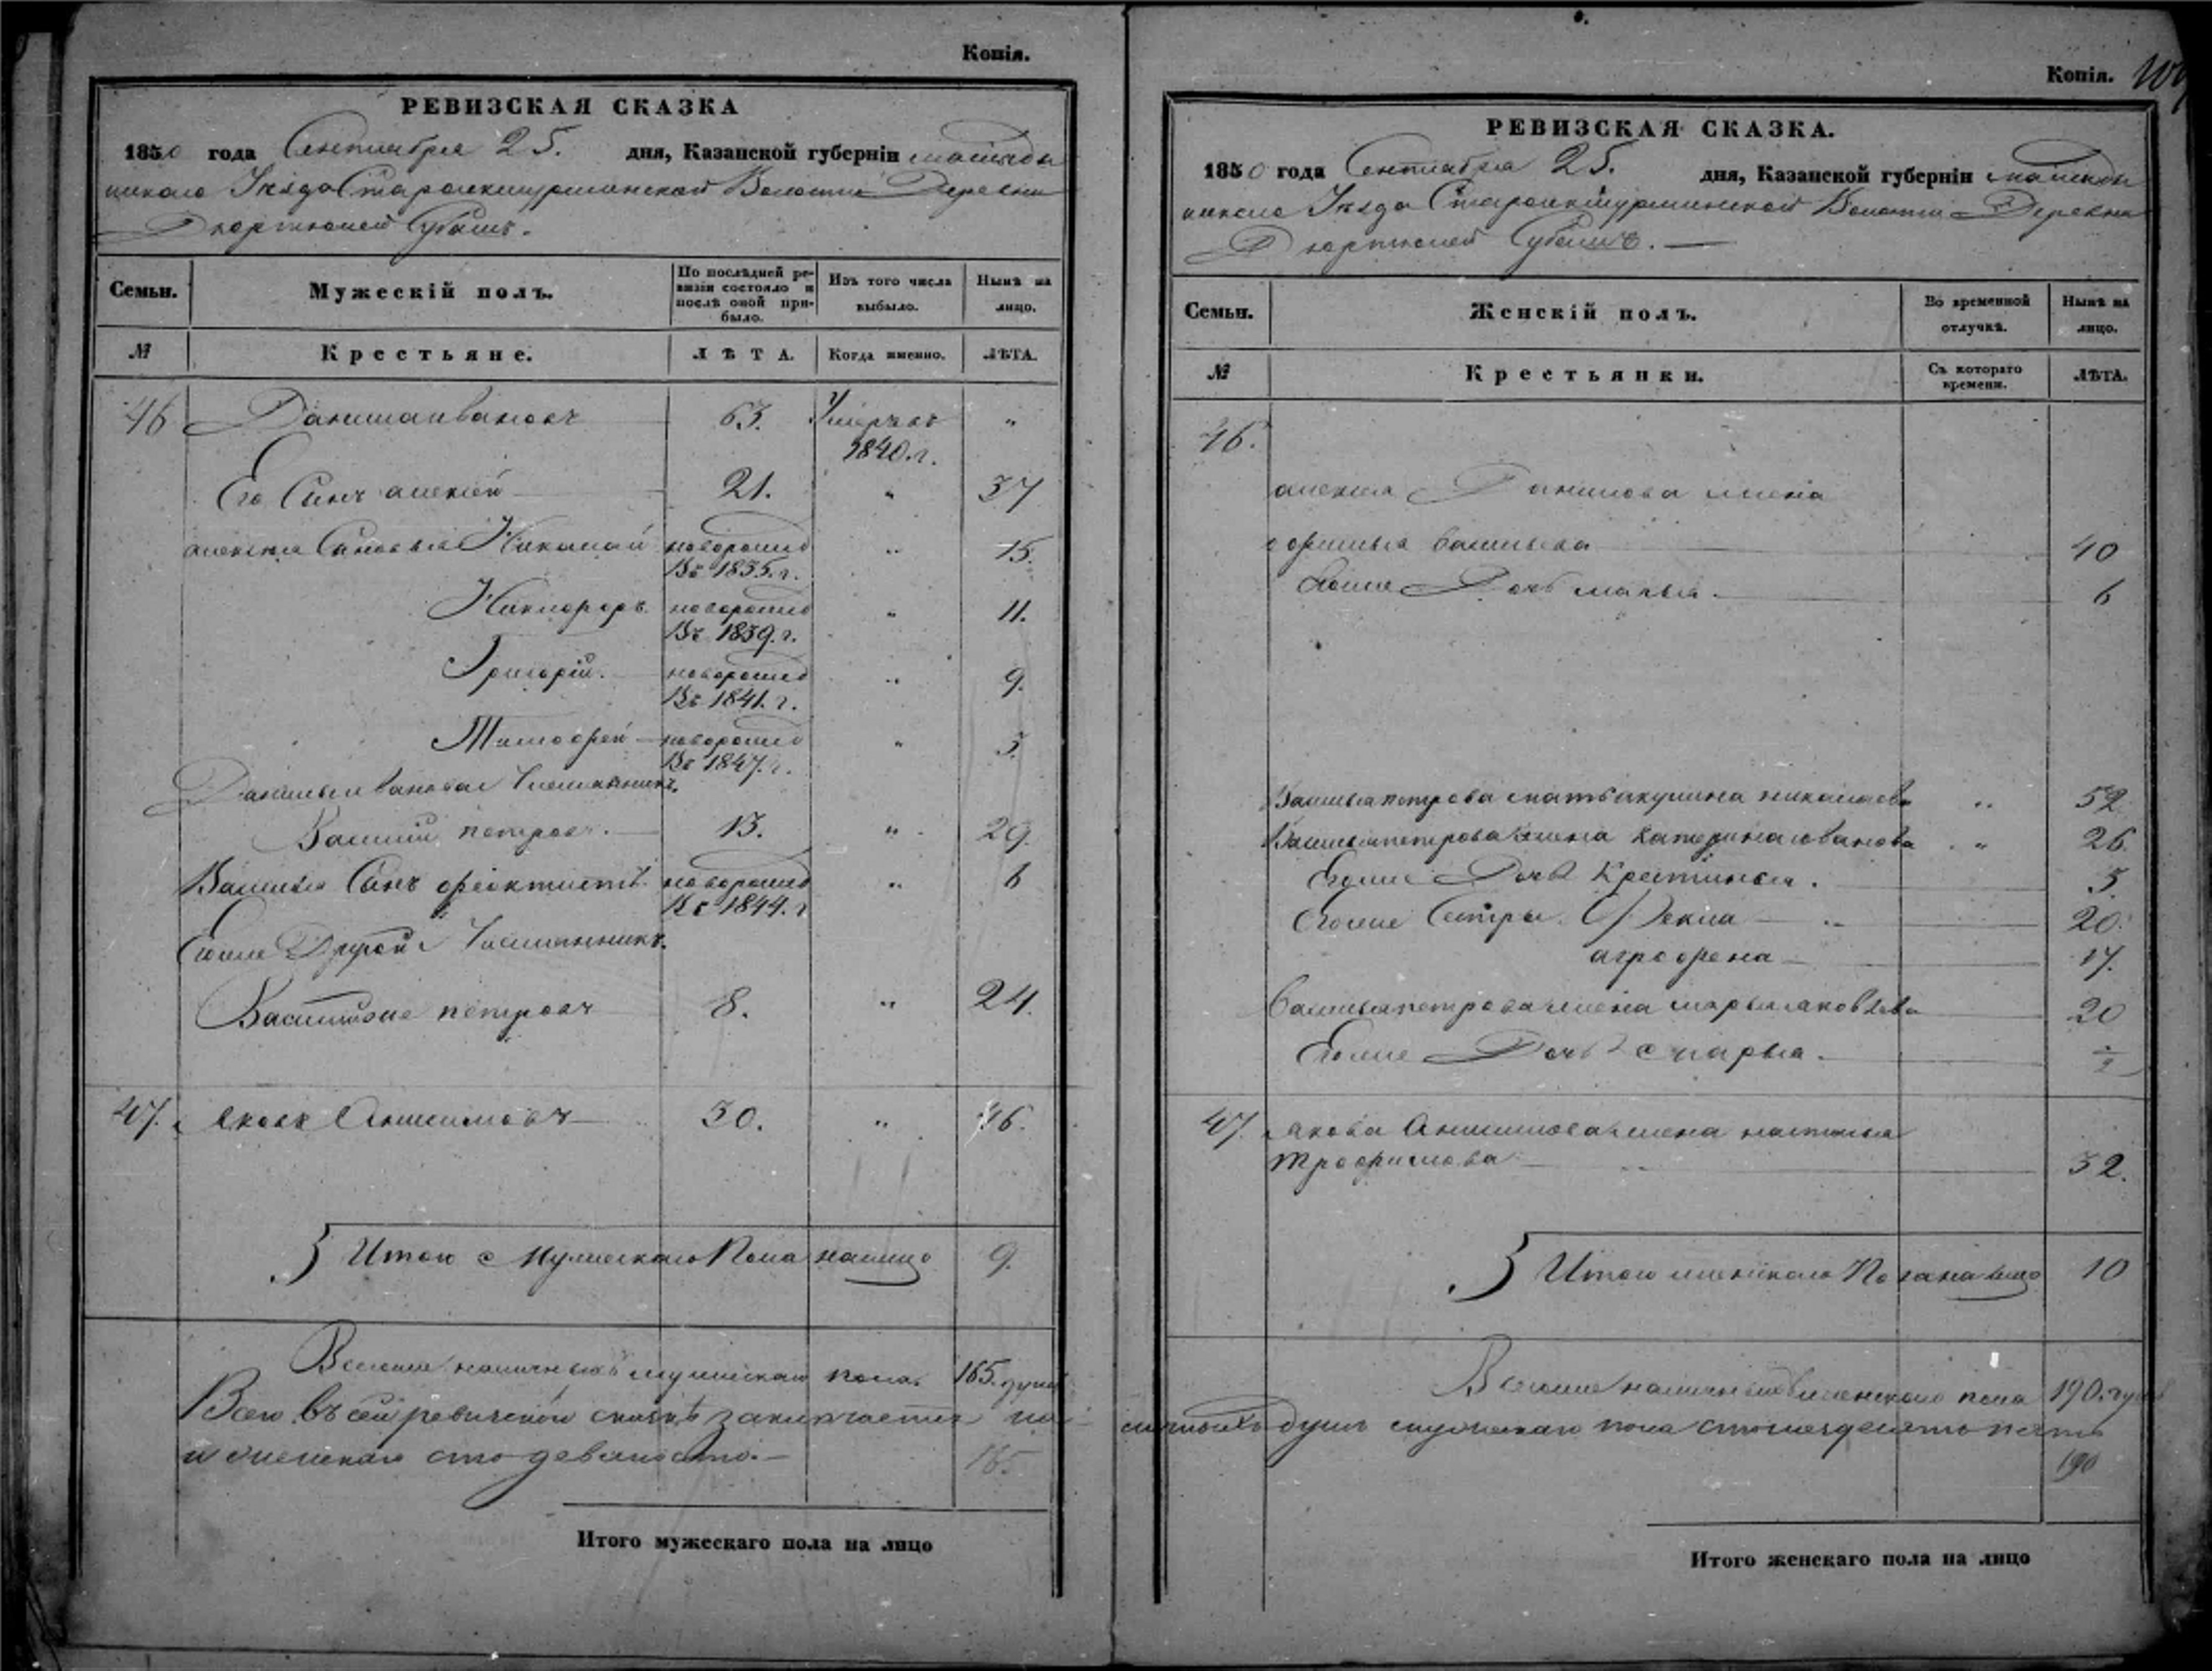 Копія.
РЕВИЗСКАЯ СКАЗКА
1850 года Сентября 25. дня, Казанской губерніи мамады
шскаго Уѣзда Староикшурминской Волости Деревни
Дюртюлей Субашъ.
Семьи. Мужескій полъ. По послѣдней ре-
визіи состояло и
послѣ оной при-
было. Изъ того числа
выбыло. Нынѣ на
лицо.
№ Крестьяне. ЛѢТА. Когда именно. ЛѢТА.
46 Данила ивановъ 63. Умеръ въ "
1840. г.
Его Сынъ алексѣй 21. " 37
алексѣя Сыновья Николай новорожд " 15.
Въ 1835. г.
Никифоръ новорожд " 11.
Въ 1839. г.
Григорій. новорожд " 9.
Въ 1841. г.
Тимофей новорожд " 3.
Въ 1847. г.
Данилы иванова племянникъ
Василій петровъ. 13. " 29.
Василья Сынъ феоктистъ новорожд " 6
Въ 1844. г
Егоже Другой племянникъ.
Василій петровъ 8. " 24.
47. Яковъ Анисимовъ 30. " 46.
Итого Мужескаго Пола налицо 9.
Всегоже наличныхъ мужескаго пола. 165. душъ
Всего въ сей ревизской сказкѣ заключается на
и женскаго сто девяносто. 165.
Итого мужескаго пола на лицо
Копія.
РЕВИЗСКАЯ СКАЗКА.
1850 года Сентября 25. дня, Казанской губерніи мамады
шскаго Уѣзда Староикшурминской Волости Деревни
Дюртюлей Субашъ.
Семьи. Женскій полъ. Во временной
отлучкѣ. Нынѣ на
лицо.
№ Крестьянки. Съ котораго
времени. ЛѢТА.
46.
алексѣя Данилова жена
васильева 40
Егоже Дочь марья. 6
Василья петрова мать акулина николаева " 52
Василья петрова жена катерина иванова " 26.
Егоже Дочь Крестинья. 3.
Егоже Сестры Фекла 20.
агрофена 17.
Василья петрова жена марья яковлева 20
Егоже Дочь марья.
47. якова Анисимова жена наталья
трофимова 32.
Итого женскаго Пола налицо 10
Всегоже наличныхъ женскаго пола 190. душъ
личныхъ душъ мужескаго пола сто шездесятъ пять
190
Итого женскаго пола на лицо